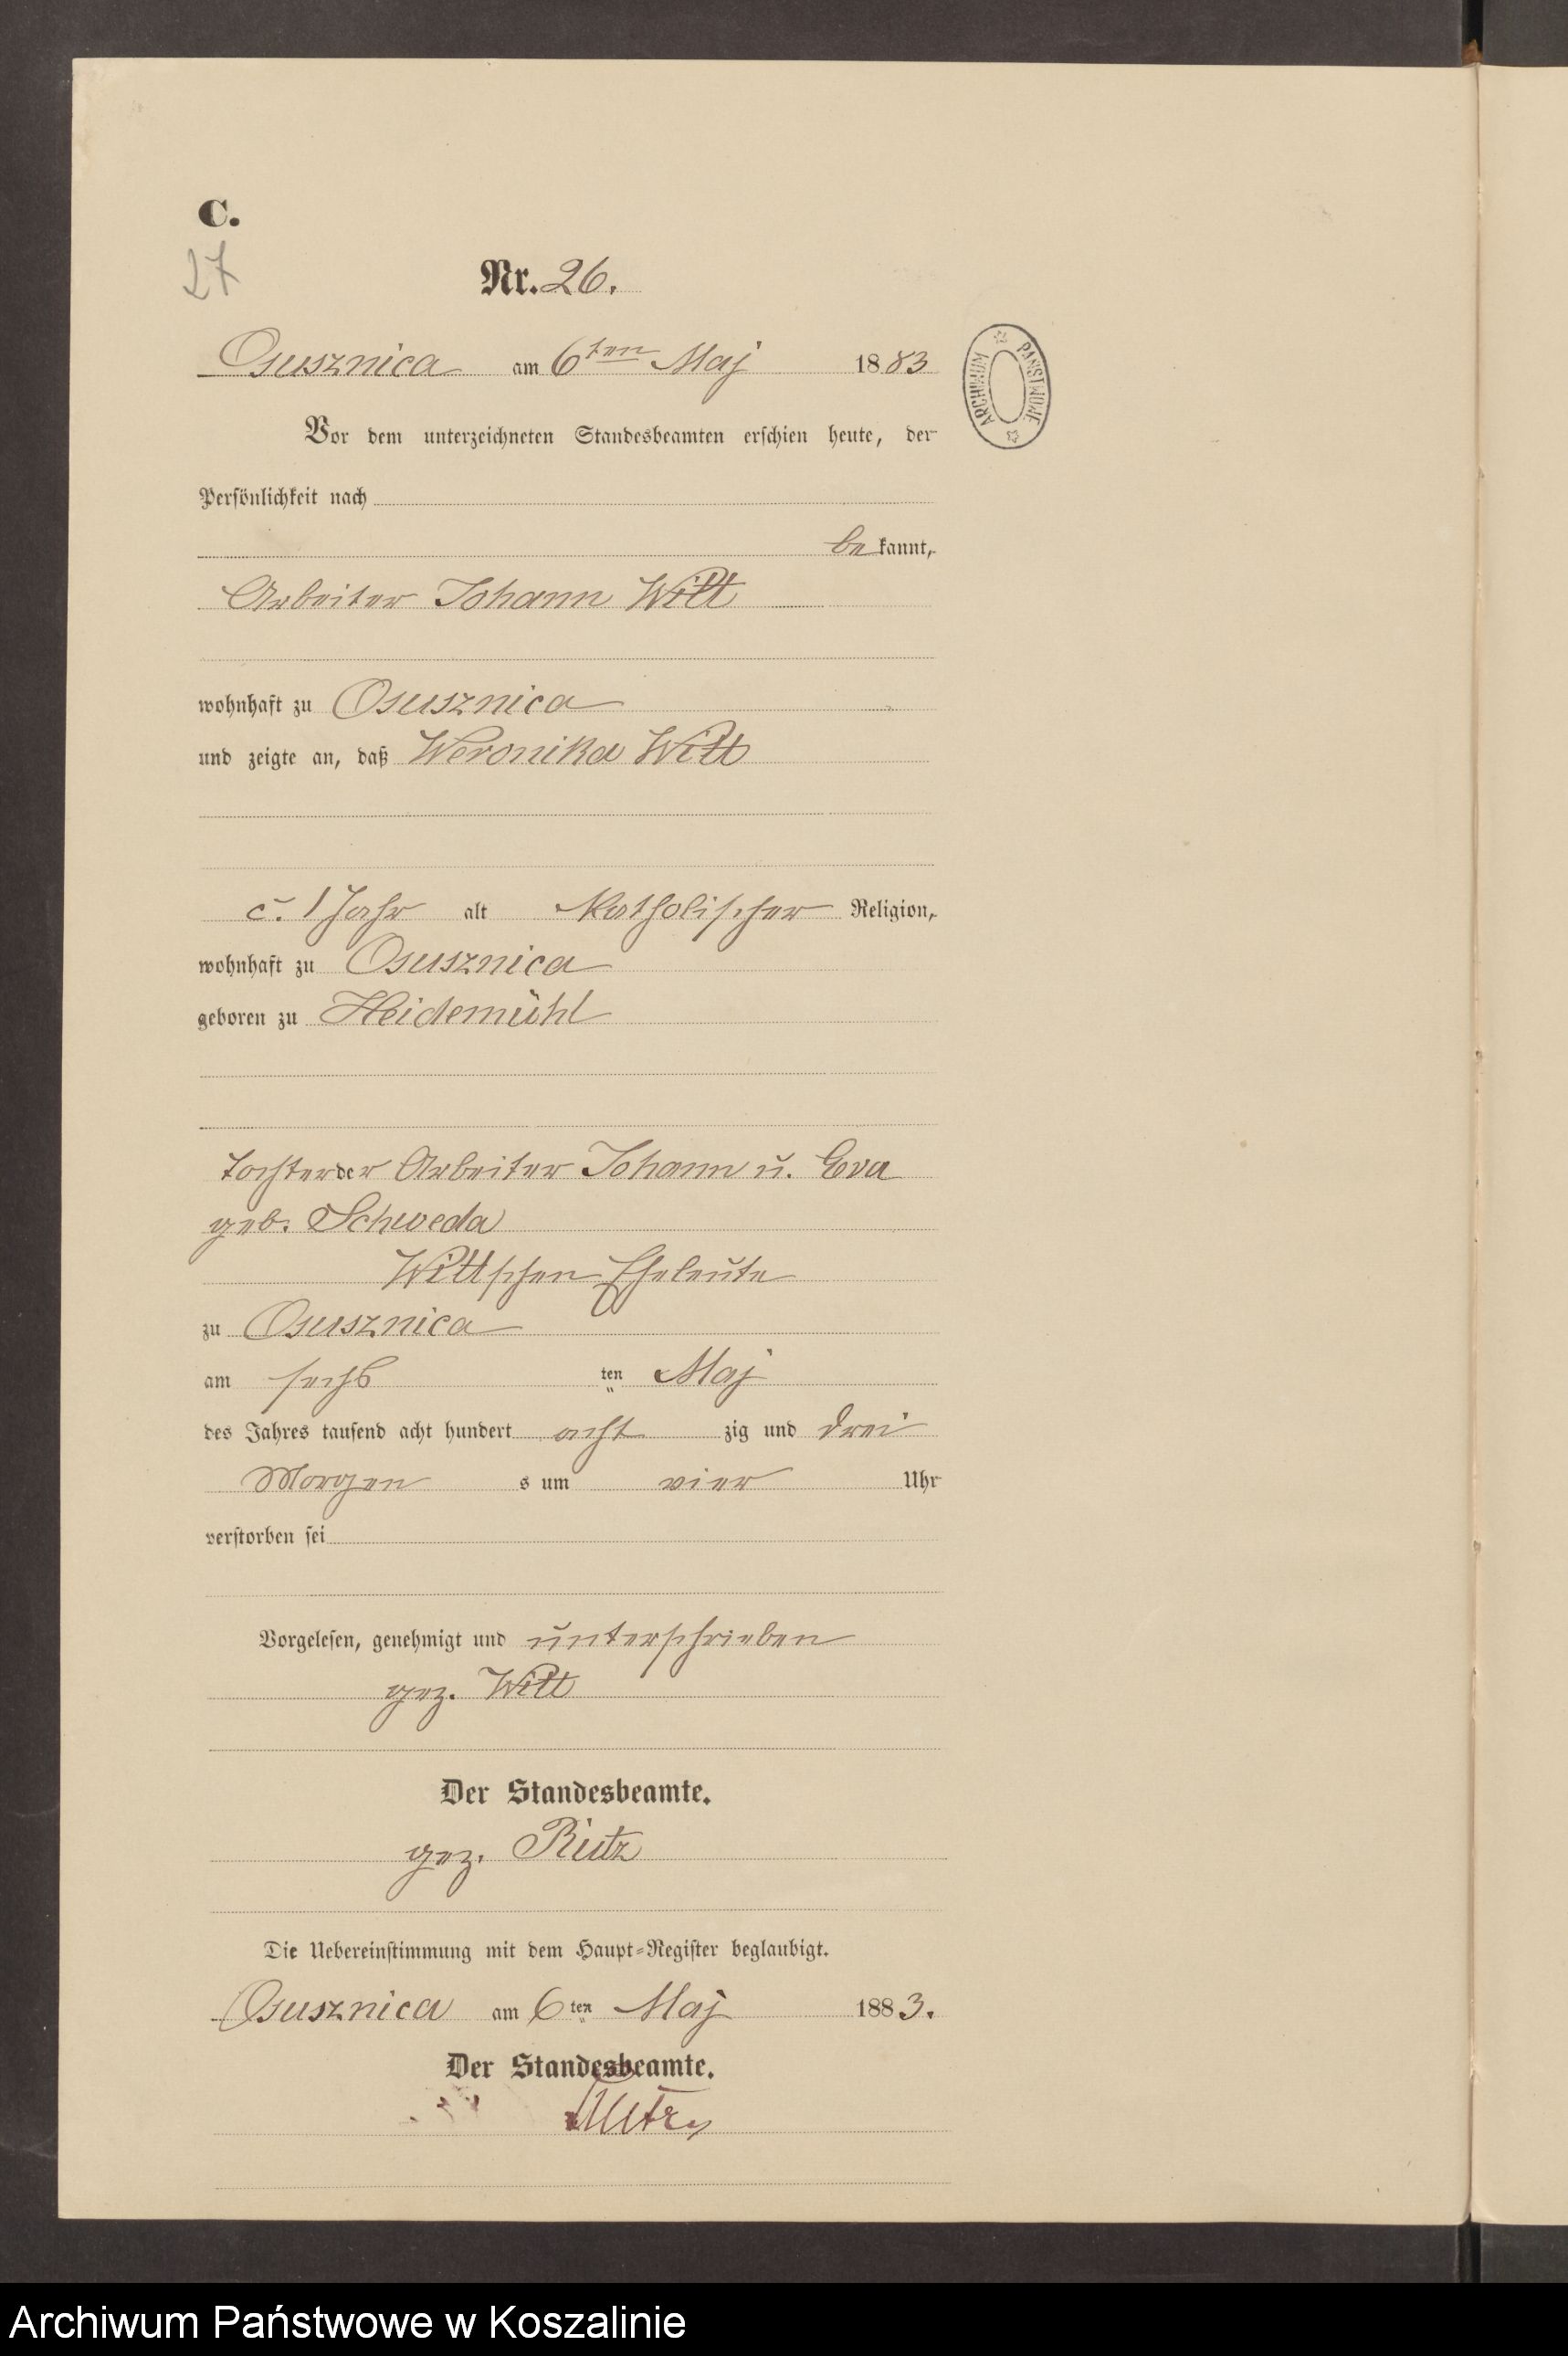 C.
27
Nr. 26.
Osusznica am 6ten Maj 1883
ARCHIWUM PAŃSTWOWE
Vor dem unterzeichneten Standesbeamten erschien heute, der
Persönlichkeit nach
be kannt,
Arbeiter Johann Witt
wohnhaft zu Osusznica
und zeigte an, daß Weronika Witt
c. 1 Jahr alt Katholischer Religion,
wohnhaft zu Osusznica
geboren zu Heidemühl
tochter der Arbeiter Johann u. Eva
geb. Schweda
Wittschen Eheleute
zu Osusznica
am sechs ten Maj
des Jahres tausend acht hundert acht zig und drei
Morgen s um vier Uhr
verstorben sei
Vorgelesen, genehmigt und unterschrieben
gez. Witt
Der Standesbeamte.
gez. Rutz
Die Uebereinstimmung mit dem Haupt-Register beglaubigt.
Osusznica am 6ten Maj 1883.
Der Standesbeamte.
Archiwum Państwowe w Koszalinie